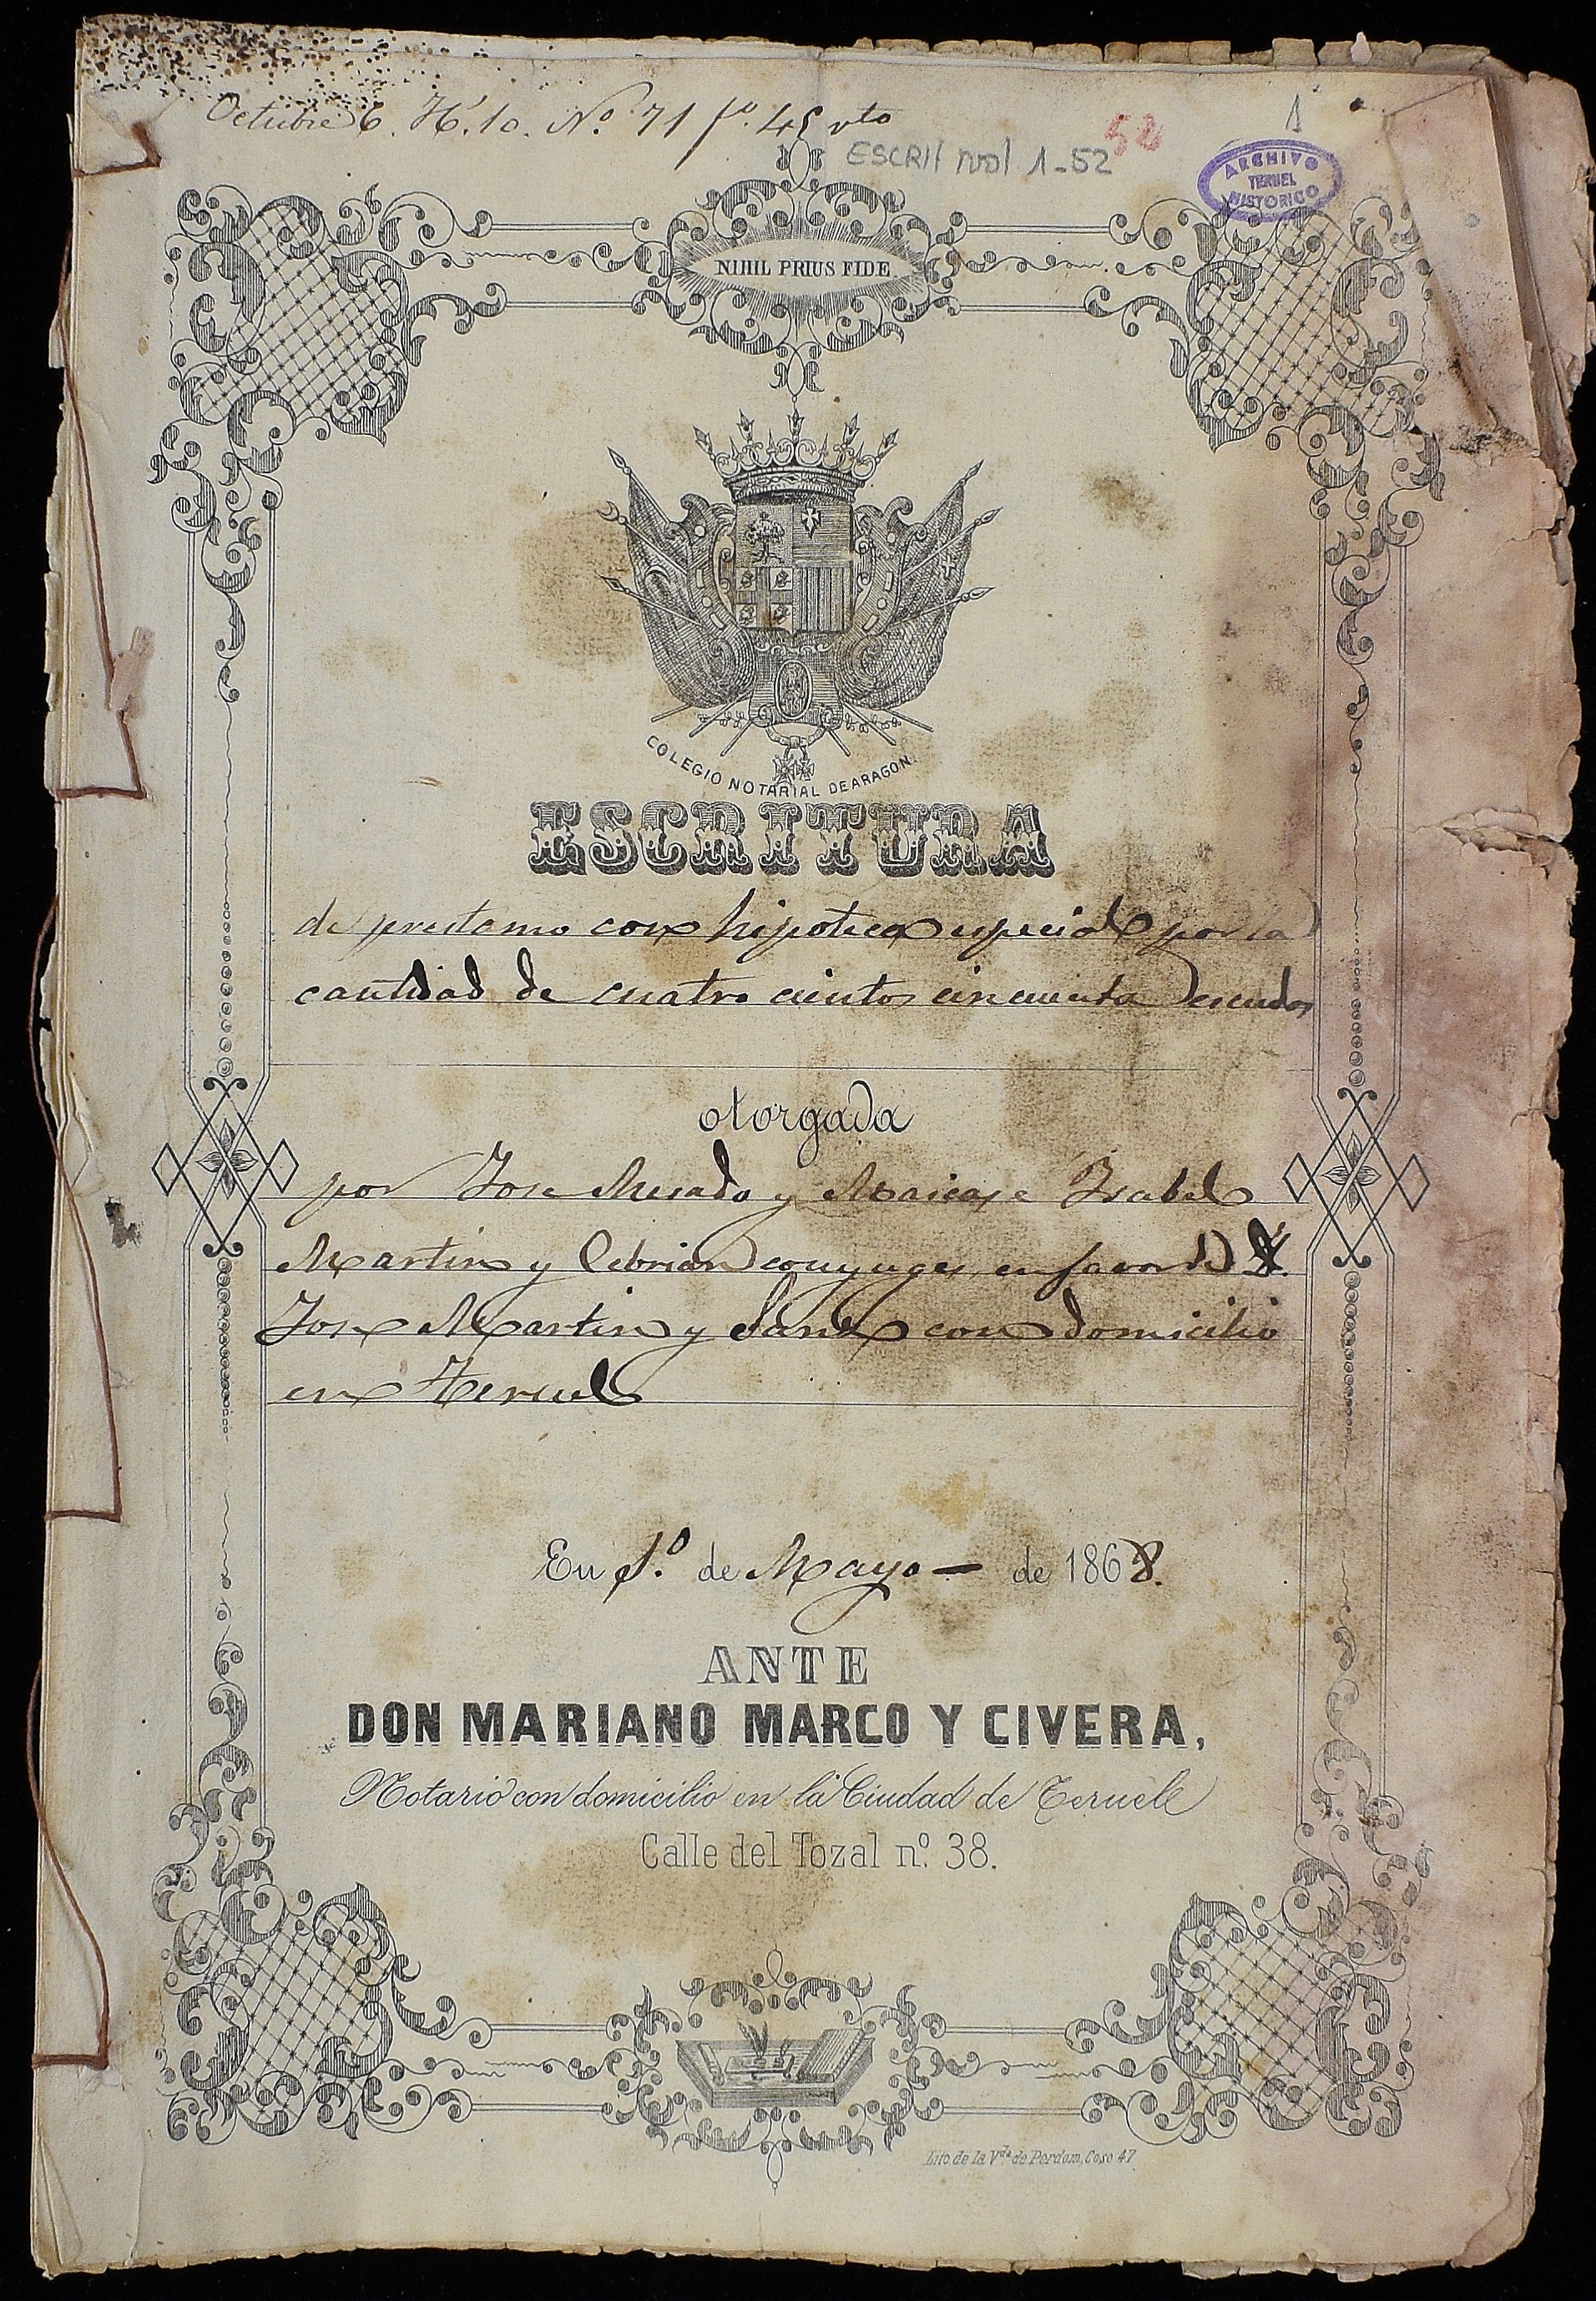 Octubre 6. Hº. 10. Nº. 71 fº. 45 vto
ESCRIT nº 1-52
52
1
ARCHIVO
TERUEL
HISTORICO
NIHIL PRIUS FIDE
COLEGIO NOTARIAL DE ARAGON.
ESCRITURA
de prestamo con hipoteca especial por la
cantidad de cuatro cientos cincuenta escudos
otorgada
por Jose Mesado y Maicas e Isabel
Martin y Cebrian conyuges, en favor de D.
Jose Martin y Sanz con domicilio
en Teruel
En 1.º de Mayo — de 1868.
ANTE
DON MARIANO MARCO Y CIVERA,
Notario con domicilio en la Ciudad de Teruel
Calle del Tozal nº. 38.
Lito. de la Vda. de Perdom, Coso 47